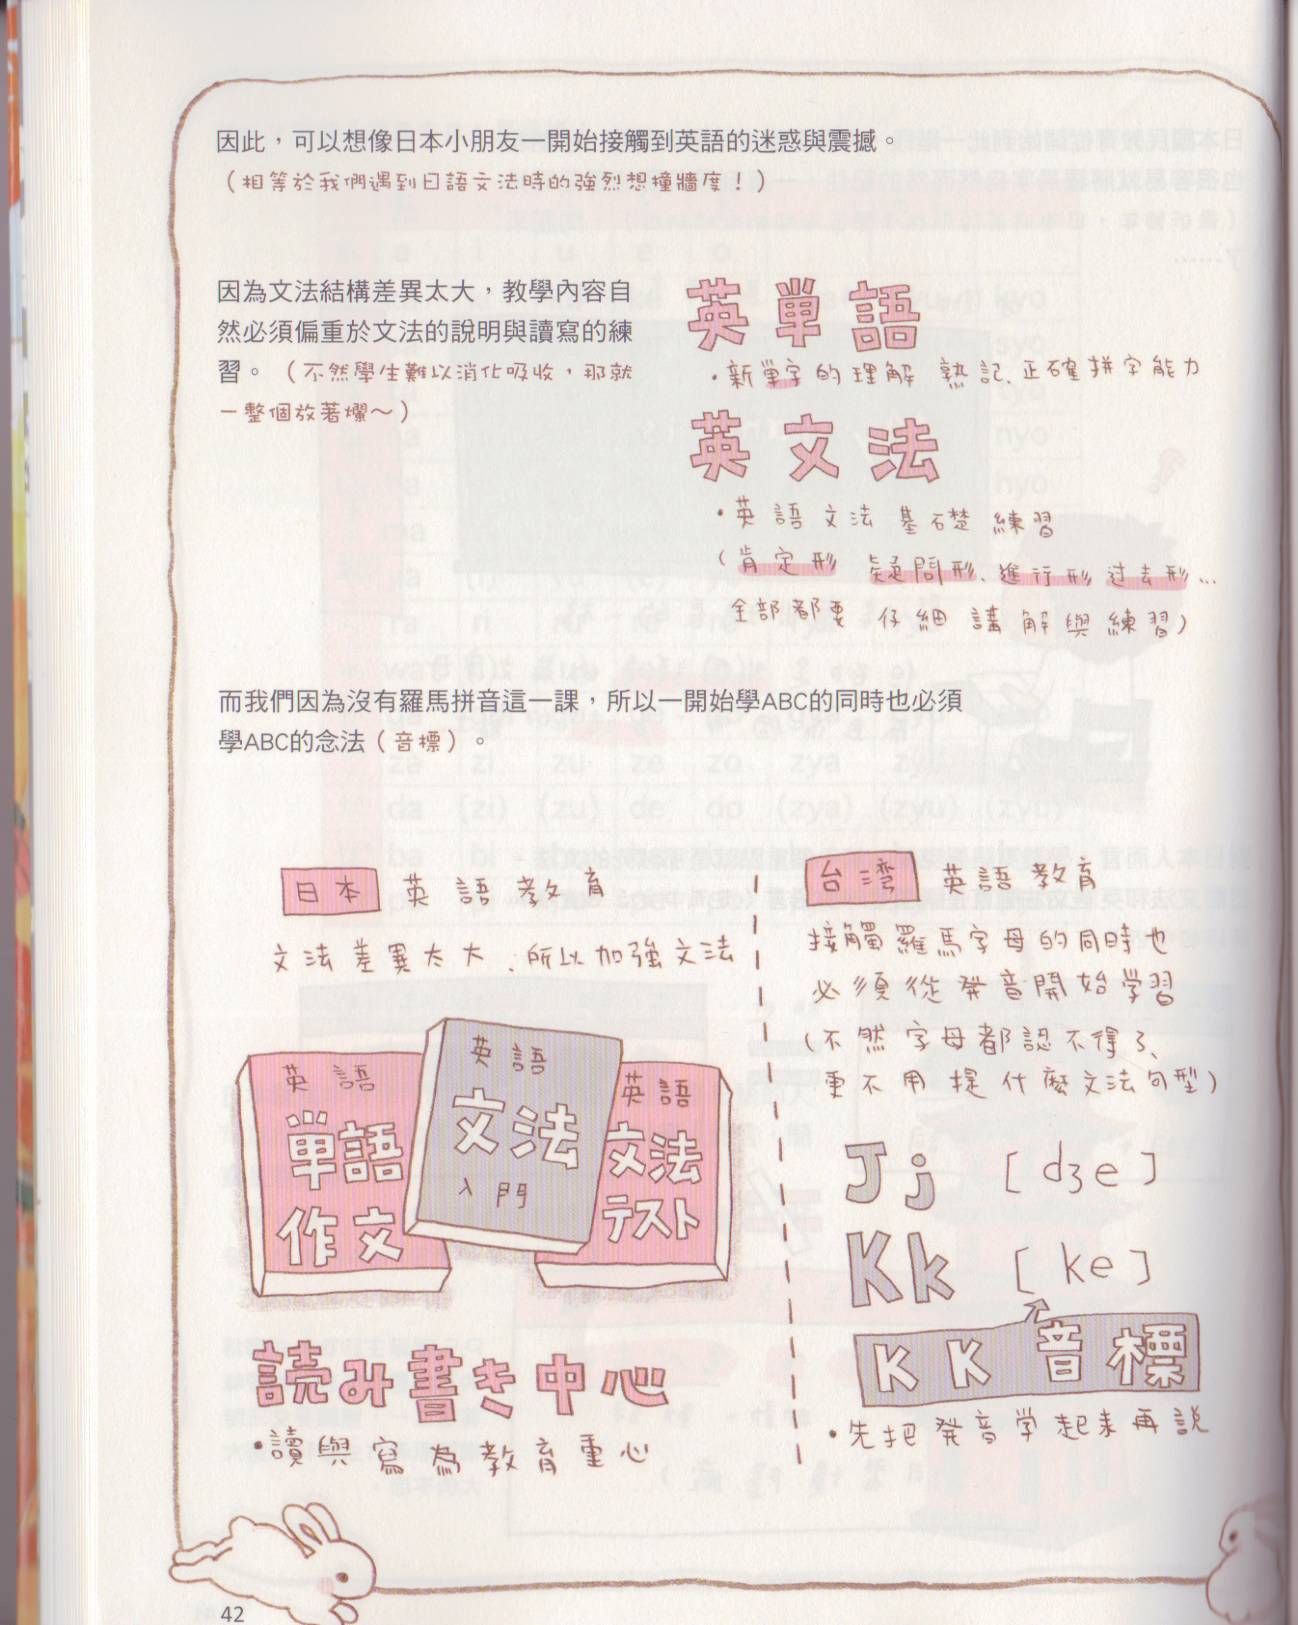 因此，可以想像日本小朋友一開始接觸到英語的迷惑與震撼。
（相等於我們遇到日語文法時的強烈想撞牆度！）
因為文法結構差異太大，教學內容自
然必須偏重於文法的說明與讀寫的練
習。（不然學生難以消化吸收，那就
一整個放著爛～）
英單語
・新單字的理解 熟記、正確拼字能力
英文法
・英語文法基礎練習
（肯定形 疑問形、進行形 过去形...
全部都要仔細講解與練習）
而我們因為沒有羅馬拼音這一課，所以一開始學ABC的同時也必須
學ABC的念法（音標）。
日本 英語教育
文法差異太大、所以加強文法
英語
単語
作文
英語
文法
入門
英語
文法
テスト
読み書き中心
・讀與寫為教育重心
台湾 英語教育
接觸羅馬字母的同時也
必須從発音開始学習
（不然字母都認不得了、
更不用提什麼文法句型）
Jj [dʒe]
Kk [ke]
KK音標
・先把発音学起来再説
42